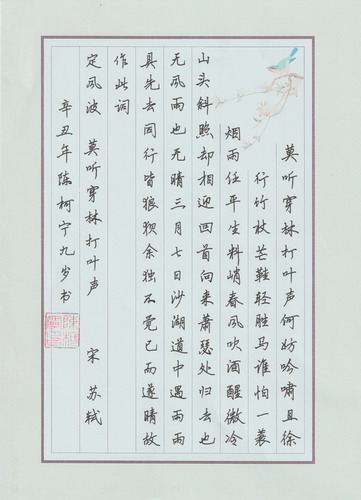 莫听穿林打叶声何妨吟啸且徐
行竹枝芒鞋轻胜马谁怕一蓑
烟雨任平生料峭春风吹酒醒微冷
山头斜照却相迎回首向来萧瑟处归去也
无风雨也无晴三月七日沙湖道中遇雨雨
具先去同行皆狼狈余独不觉已而遂晴故
作此词
定风波 莫听穿林打叶声 宋 苏轼
辛丑年陈柯宁九岁书